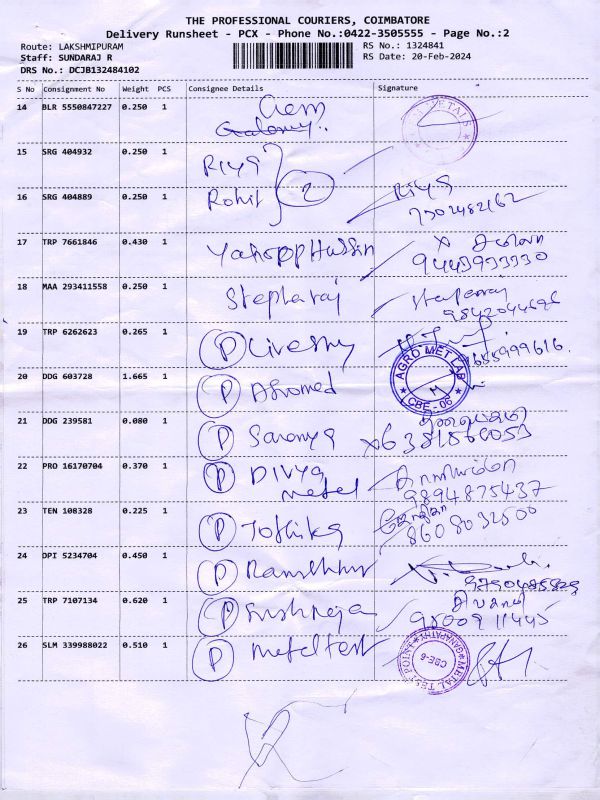 THE PROFESSIONAL COURIERS, COIMBATORE
Delivery Runsheet - PCX - Phone No.:0422-3505555 - Page No.:2
Route: LAKSHMIPURAM RS No.: 1324841
Staff: SUNDARAJ R RS Date: 20-Feb-2024
DRS No.: DCJB132484102
S No Consignment No Weight PCS Consignee Details Signature
14 BLR 5550847227 0.250 1
15 SRG 404932 0.250 1 Riya
16 SRG 404889 0.250 1 Rohit 2 Riya
7502482162
17 TRP 7661846 0.430 1
9443933330
18 MAA 293411558 0.250 1 Stepharaj
19 TRP 6262623 0.265 1 P
20 DDG 603728 1.665 1 P AGRO MET LAB CBE-06
21 DDG 239581 0.080 1 P Saranya
22 PRO 16170704 0.370 1 P Divya
metel 9894875437
23 TEN 108328 0.225 1 P Tothika
8608032500
24 DPI 5234704 0.450 1 P
25 TRP 7107134 0.620 1 P
9500911445
26 SLM 339988022 0.510 1 P metel test METAL TEST POINT GANAPATHY CBE-6